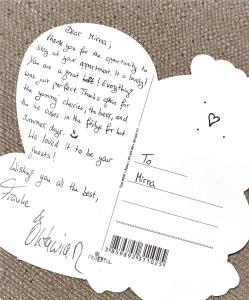 Dear Mirna,
thank you for the opportunity to
stay at your apartment. It is lovely!
You are a great host! Everything
was just perfect. Thanks again for
the yummy cherries, the beer, and
the ice cubes in the fridge for hot
summer days.
We loved it to be your
guests!
Wishing you all the best,
Frauke
&
To
Mirna